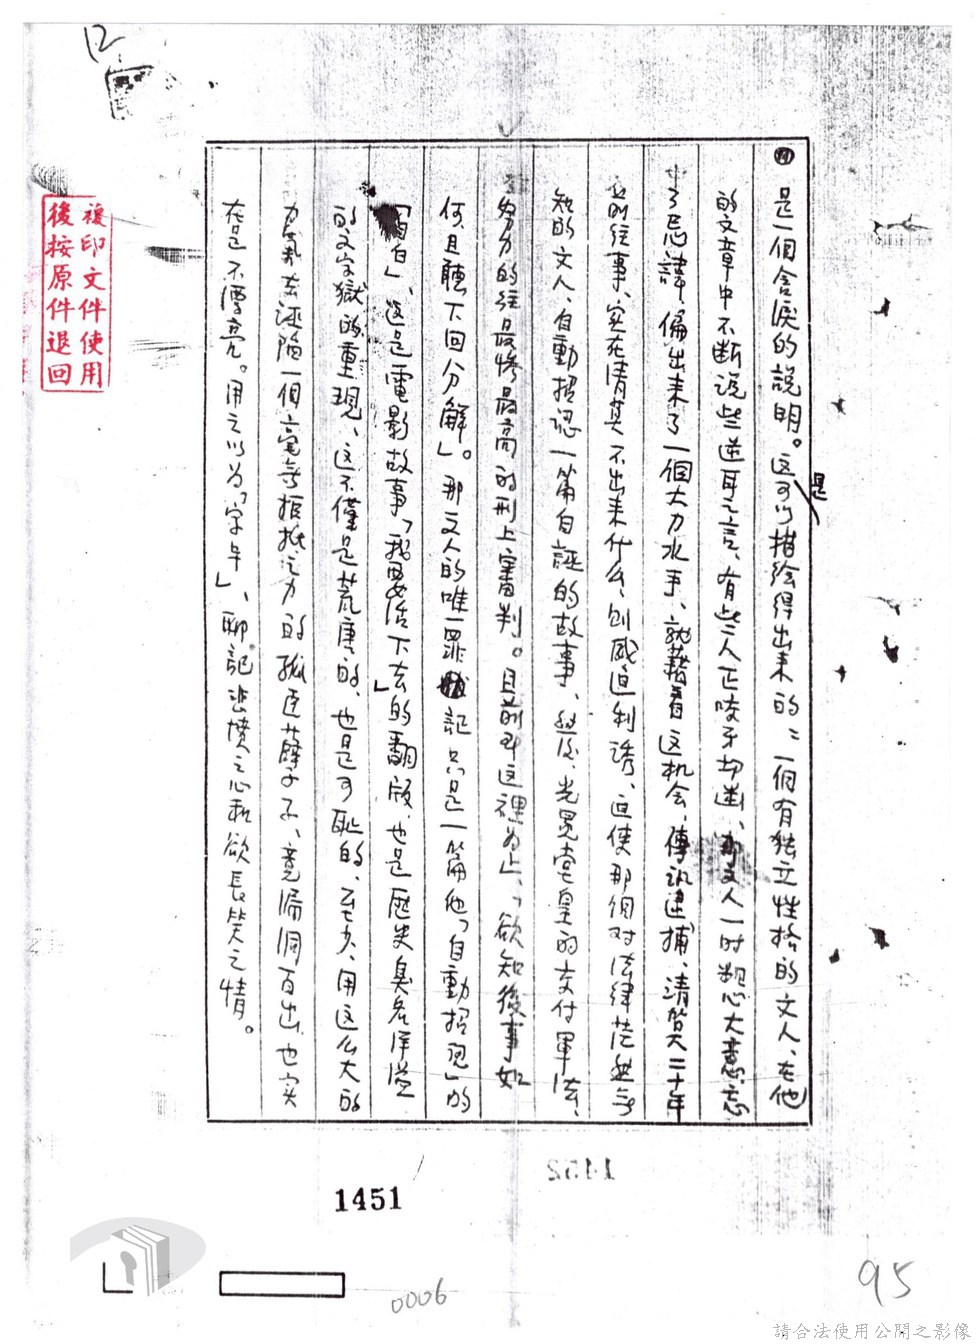 12
複印文件使用
後按原件退回
㈣ 是一個含淚的說明。这是可以描绘得出来的:一個有独立性格的文人、在他
的文章中不断说些逆耳之言、有些人正咬牙切齿、那文人一时粗心大意忘
了忌諱、偏出来了一個大力水手、就藉着这机会、傳訊逮捕、清算二十年
前往事、实在清算不出来什么、则威迫利誘、迫使那個对法律茫然無
知的文人、自動招認一篇自誣的故事、然後、光冕堂皇的交付軍法、
努力的往最惨最高的刑上審判。目前到这裡为止、「欲知後事如
何、且聽下回分解」。那文人的唯一罪 記 只是一篇他「自動招認」的
「自白」、这是電影故事「我要活下去」的翻版、也是歷史臭名洋溢
的文字獄的重現、这不僅是荒唐的、也是可恥的、至少、用这么大的
力氣去誣陷一個毫無抵抗之力的孤臣孽子、竟漏洞百出、也实
在是不漂亮。用之以为「字年」、聊記悲憤之心和欲長笑之情。
1452
1451
0006
95
請合法使用公開之影像